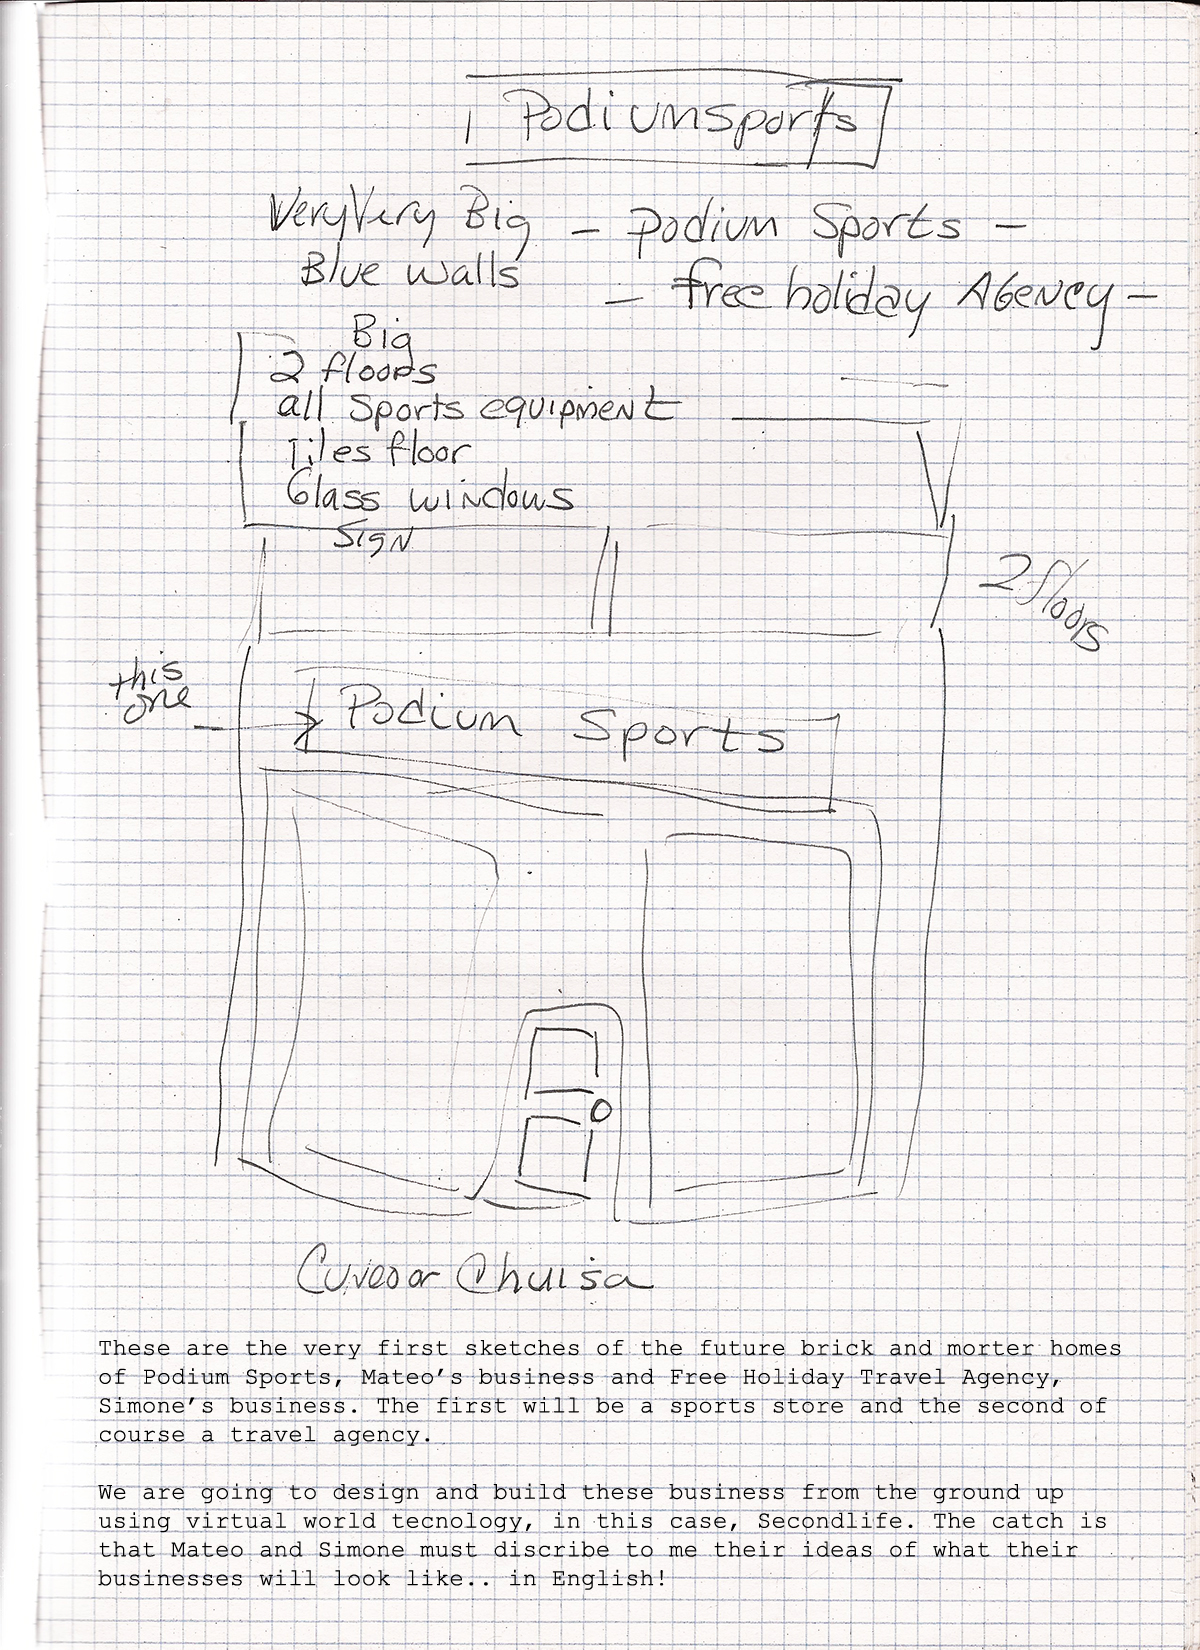 Podiumsports
Very Very Big
Blue walls
- Podium Sports -
- free holiday Agency -
Big
2 floors
all Sports equipment
Tiles floor
Glass windows
Sign
2 floors
this
one
Podium Sports
These are the very first sketches of the future brick and morter homes
of Podium Sports, Mateo's business and Free Holiday Travel Agency,
Simone's business. The first will be a sports store and the second of
course a travel agency.
We are going to design and build these business from the ground up
using virtual world tecnology, in this case, Secondlife. The catch is
that Mateo and Simone must discribe to me their ideas of what their
businesses will look like.. in English!